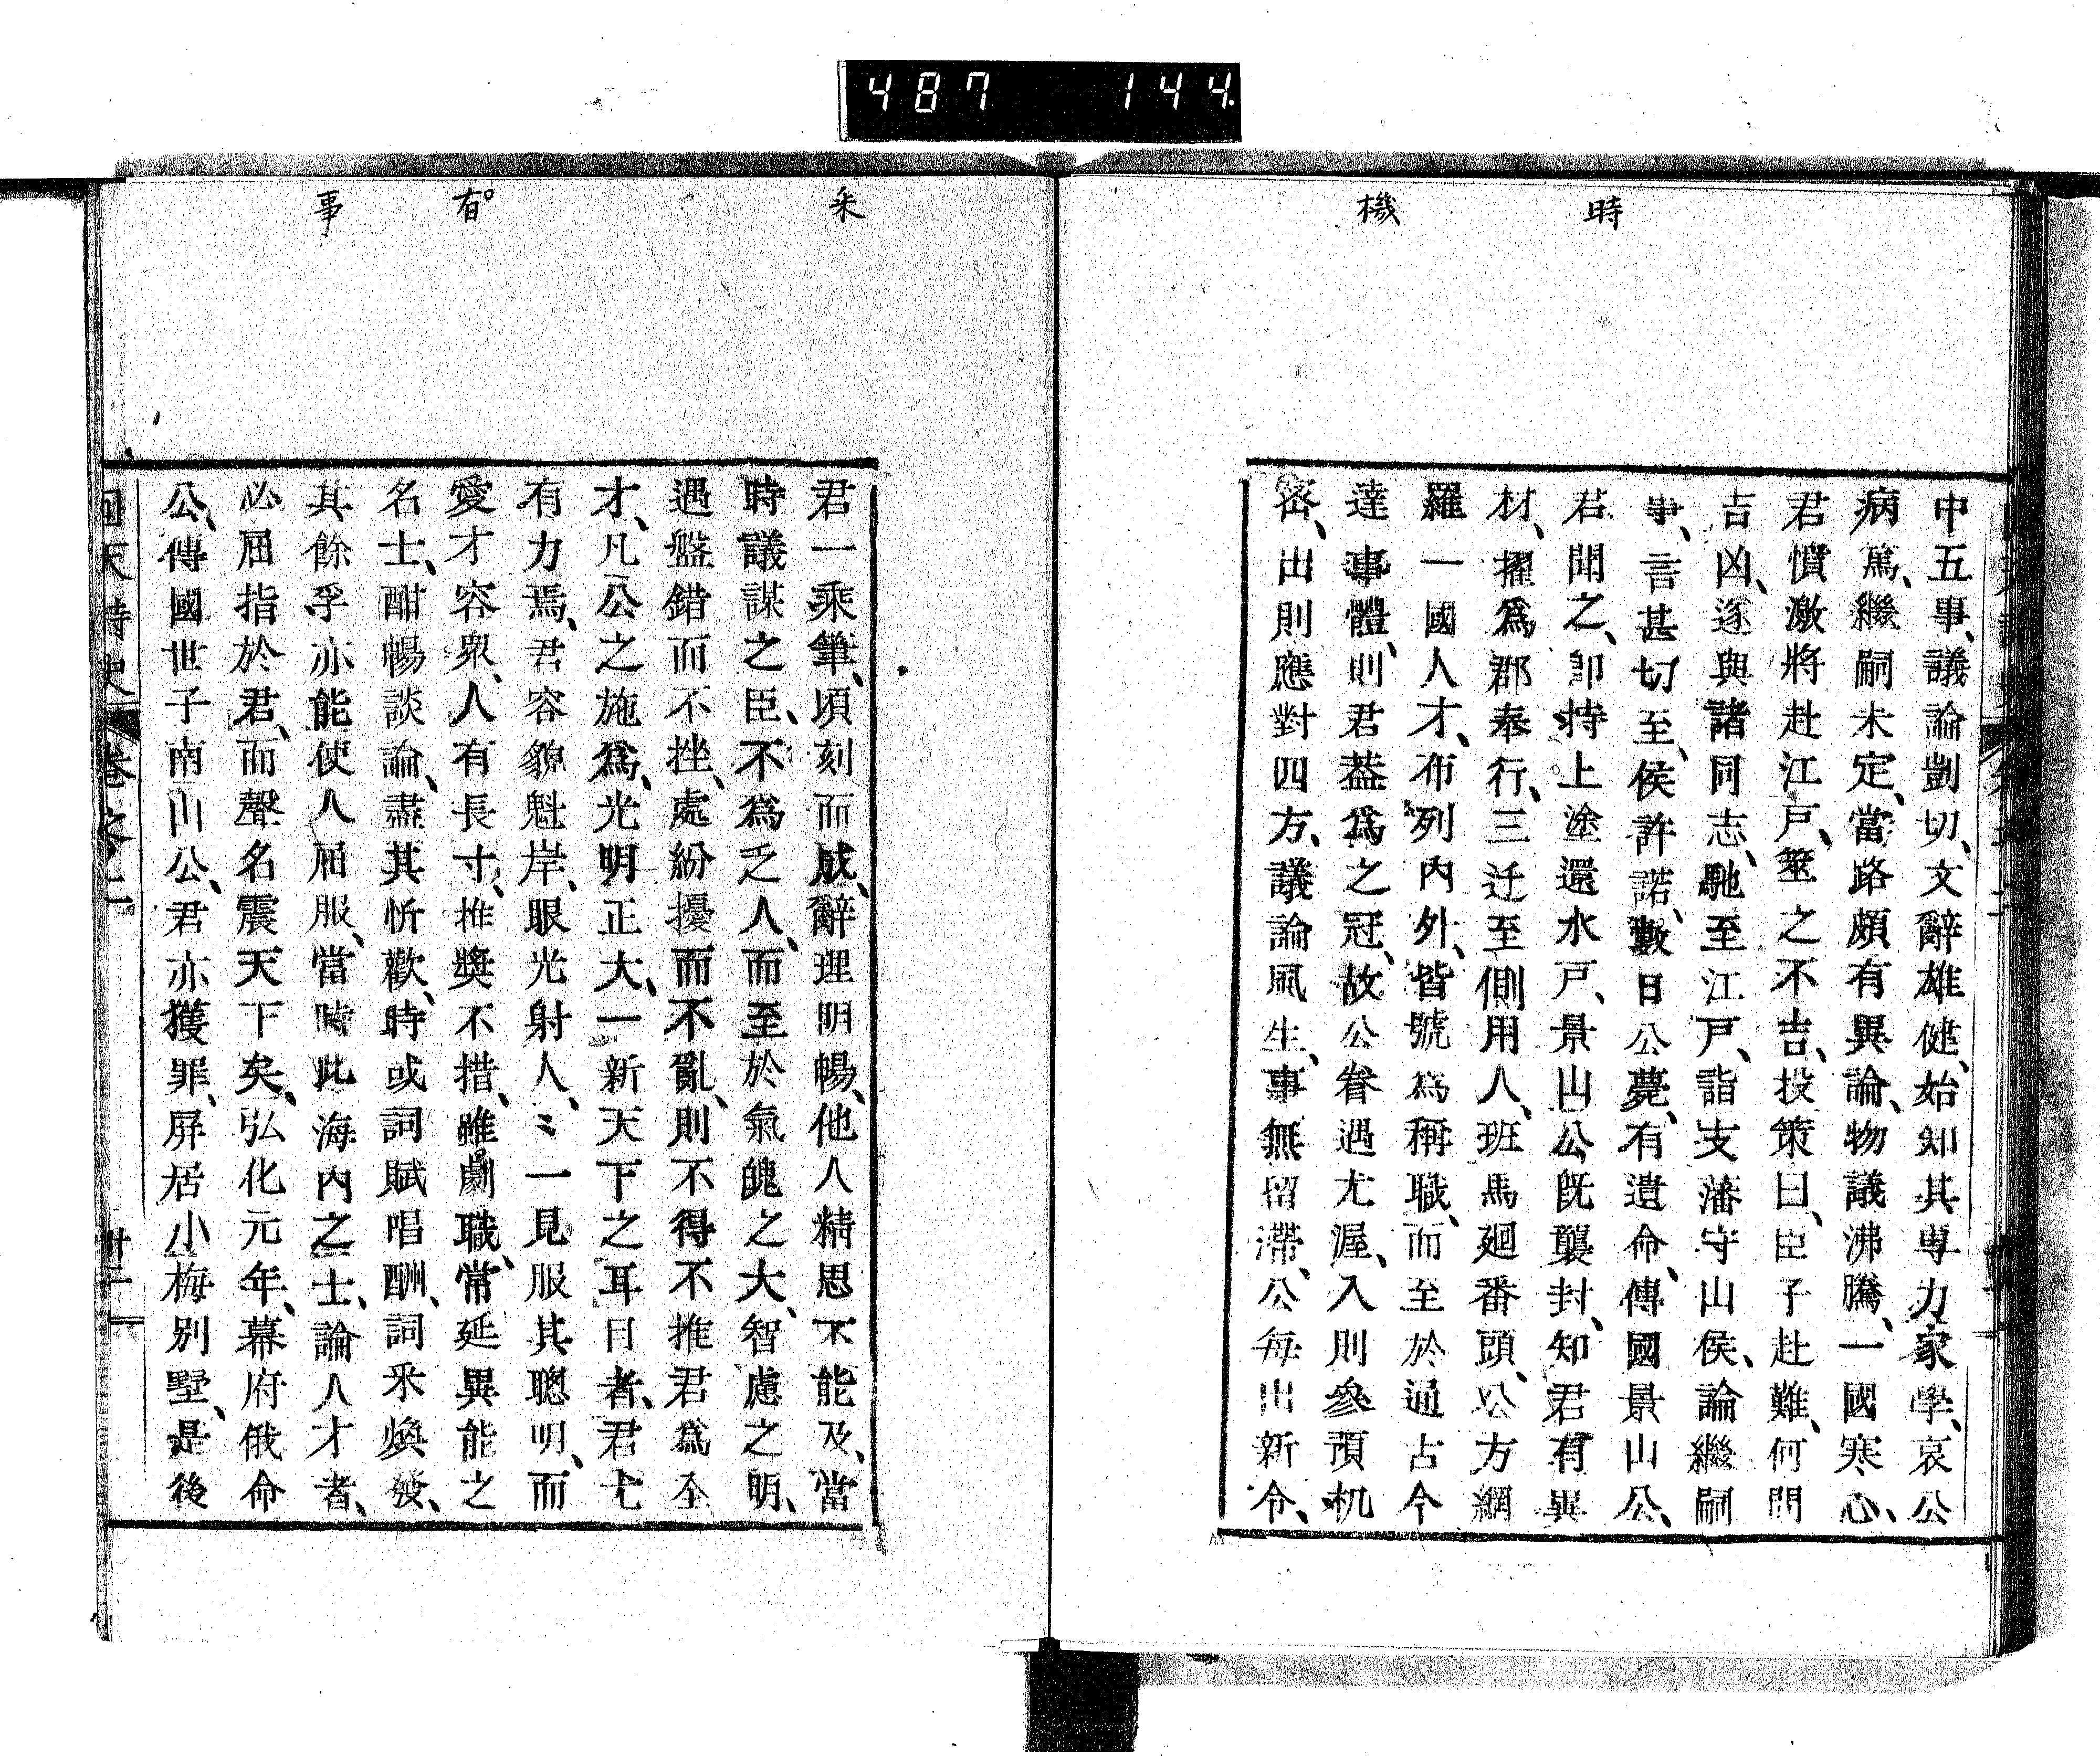 487 144
時
機
中五事、議論剴切、文辭雄健、始知其専力家學、哀公
病篤、繼嗣未定、當路頗有異論、物議沸騰、一國寒心、
君憤激將赴江戸、筮之不吉、投策曰、臣子赴難、何問
吉凶、遂與諸同志、馳至江戸、詣支藩守山侯、論繼嗣
事、言甚切至、侯許諾、數日公薨、有遺命、傳國景山公、
君聞之、卽持上塗還水戸、景山公既襲封、知君有異
材、擢爲郡奉行、三迁至側用人、班馬廻番頭、公方網
羅一國人才、布列內外、皆號爲稱職、而至於通古今
達事體、則君葢爲之冠、故公眷遇尤渥、入則參預机
密、出則應對四方、議論風生、事無留滯、公每出新令、
采
有
事
君一乘筆、頃刻而成、辭理明暢、他人精思不能及、當
時議謀之臣、不爲乏人、而至於氣魄之大、智慮之明、
遇盤錯而不挫、處紛擾而不亂、則不得不推君爲全
才、凡公之施爲、光明正大、一新天下之耳目者、君尤
有力焉、君容貌魁岸、眼光射人、〻一見服其聰明、而
愛才容衆、人有長寸、推奬不措、雖劇職、常延異能之
名士、酣暢談論、盡其忻歡、時或詞賦唱酬、詞釆煥發、
其餘孚亦能使人屈服、當時此海內之士、論人才者、
必屈指於君、而聲名震天下矣、弘化元年、幕府俄命
公、傳國世子南山公、君亦獲罪、屏居小梅別墅、是後
回天詩史 卷之上 廿二